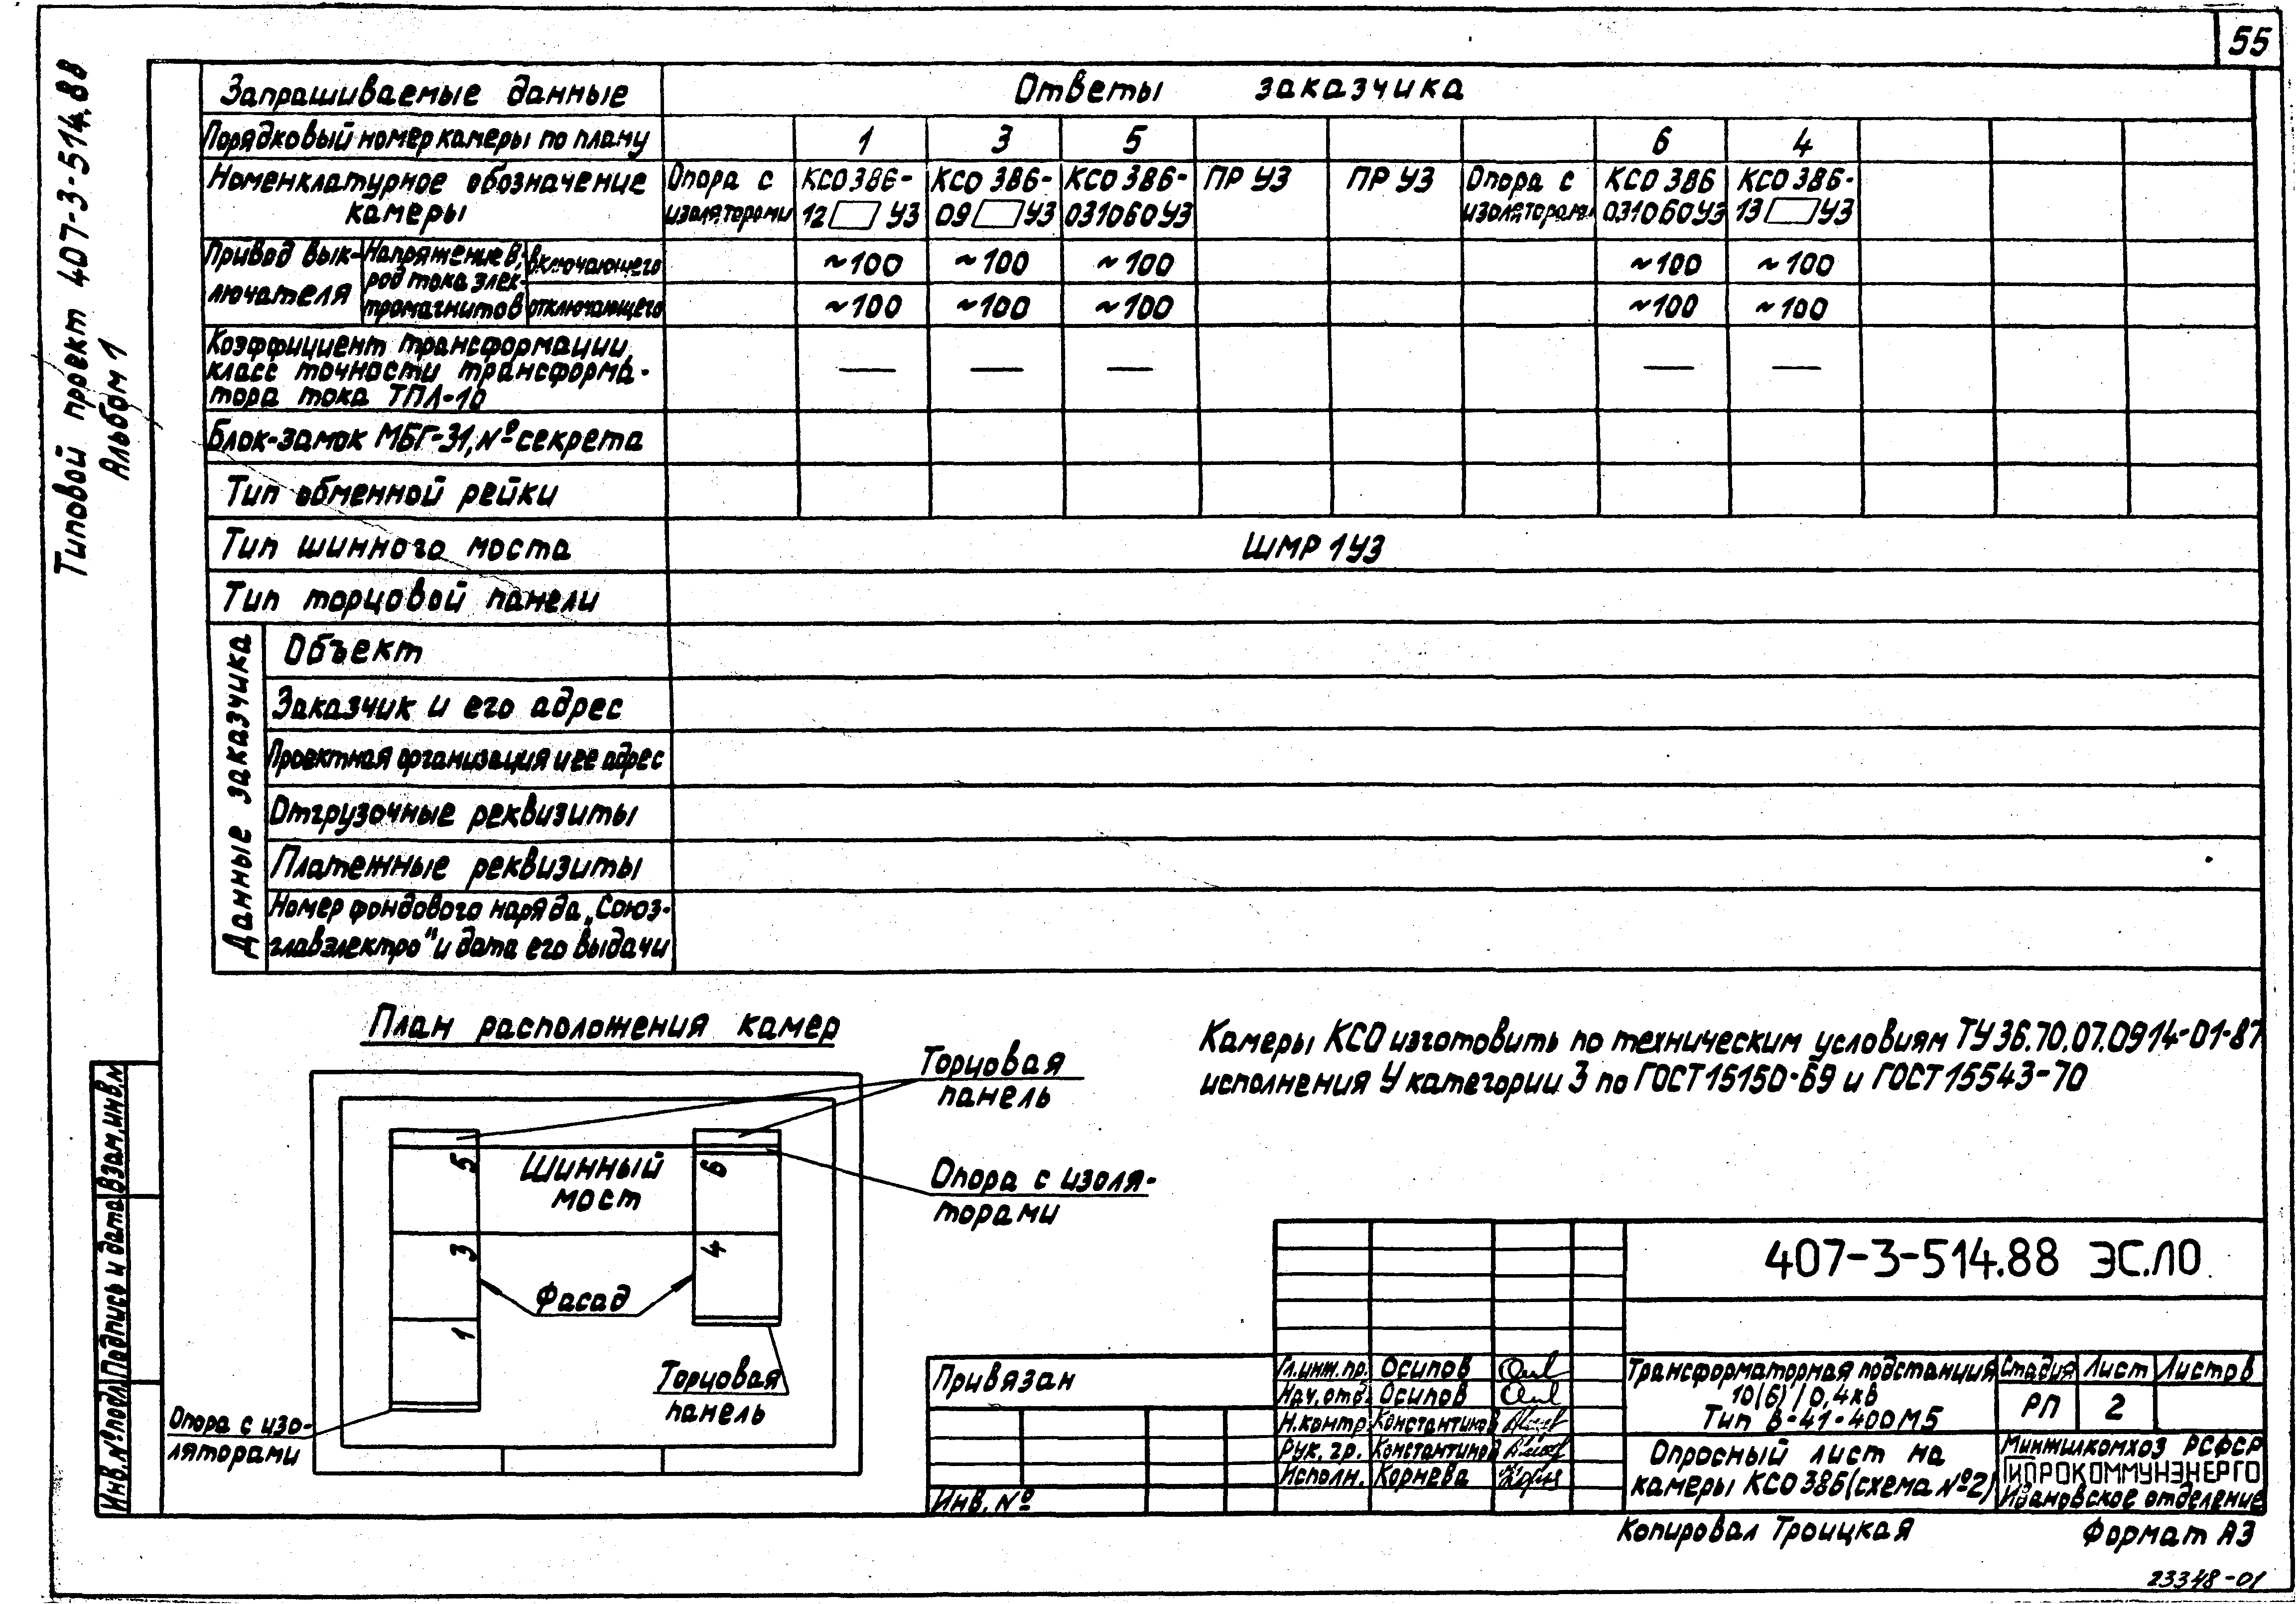 55
Типовой проект 407-3-514.88
Альбом 1
Запрашиваемые данные
Ответы заказчика
Порядковый номер камеры по плану
1 3 5 6 4
Номенклатурное обозначение
камеры
Опора с
изоляторами
КСО 386-
12 УЗ
КСО 386-
09 УЗ
КСО 386-
031060УЗ
ПР УЗ
ПР УЗ
Опора с
изоляторами
КСО 386
031060УЗ
КСО 386-
13 УЗ
Привод вык-
лючателя
Напряжение В,
род тока элек-
тромагнитов
включающего
~100 ~100 ~100 ~100 ~100
отключающего
~100 ~100 ~100 ~100 ~100
Коэффициент трансформации,
класс точности трансформа-
тора тока ТПЛ-10
— — — — —
Блок-замок МБГ-31, № секрета
Тип обменной рейки
Тип шинного моста
ШМР 1УЗ
Тип торцовой панели
Данные заказчика
Объект
Заказчик и его адрес
Проектная организация и ее адрес
Отгрузочные реквизиты
Платежные реквизиты
Номер фондового наряда „Союз-
главэлектро" и дата его выдачи
План расположения камер
Торцовая
панель
5
Шинный
мост
6
Опора с изоля-
торами
3
4
Фасад
1
Торцовая
панель
Опора с изо-
ляторами
Камеры КСО изготовить по техническим условиям ТУ 36.70.07.0914-01-87
исполнения У категории 3 по ГОСТ 15150-69 и ГОСТ 15543-70
Взам.инв.№
Подпись и дата
Инв.№подл.
407-3-514.88 ЭС.ЛО
Привязан
Инв. №
Гл.инж.пр. Осипов
Нач.отд. Осипов
Н.контр. Константинов
Рук. гр. Константинов
Исполн. Корнева
Трансформаторная подстанция
10(6)/0,4кв
Тип В-41-400М5
Стадия Лист Листов
РП 2
Опросный лист на
камеры КСО 386(схема №2)
Минжилкомхоз РСФСР
ГИПРОКОММУНЭНЕРГО
Ивановское отделение
Копировал Троицкая
Формат А3
23348-01